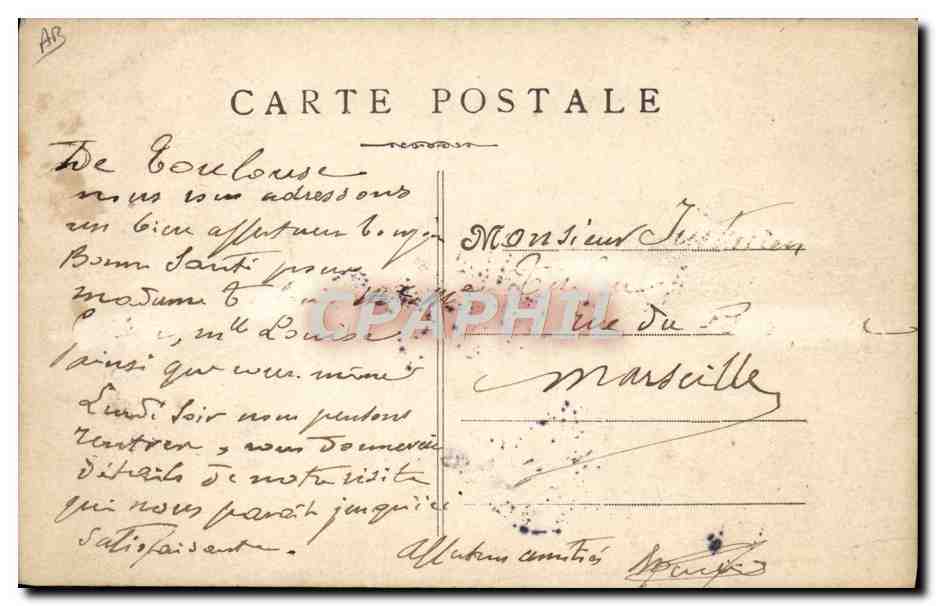 AR
CARTE POSTALE
De Toulouse
nous vous adressons
un bien affectueux bonjour
Bonne Santé pour
madame
, mlle Louise
ainsi que vous même
Lundi soir nous pensons
rentrer, vous donnerai
détails de notre visite
qui nous paraît jusqu'ici
satisfaisante.
affectueuses amitiés
Monsieur
rue du
Marseille
CPAPHIL